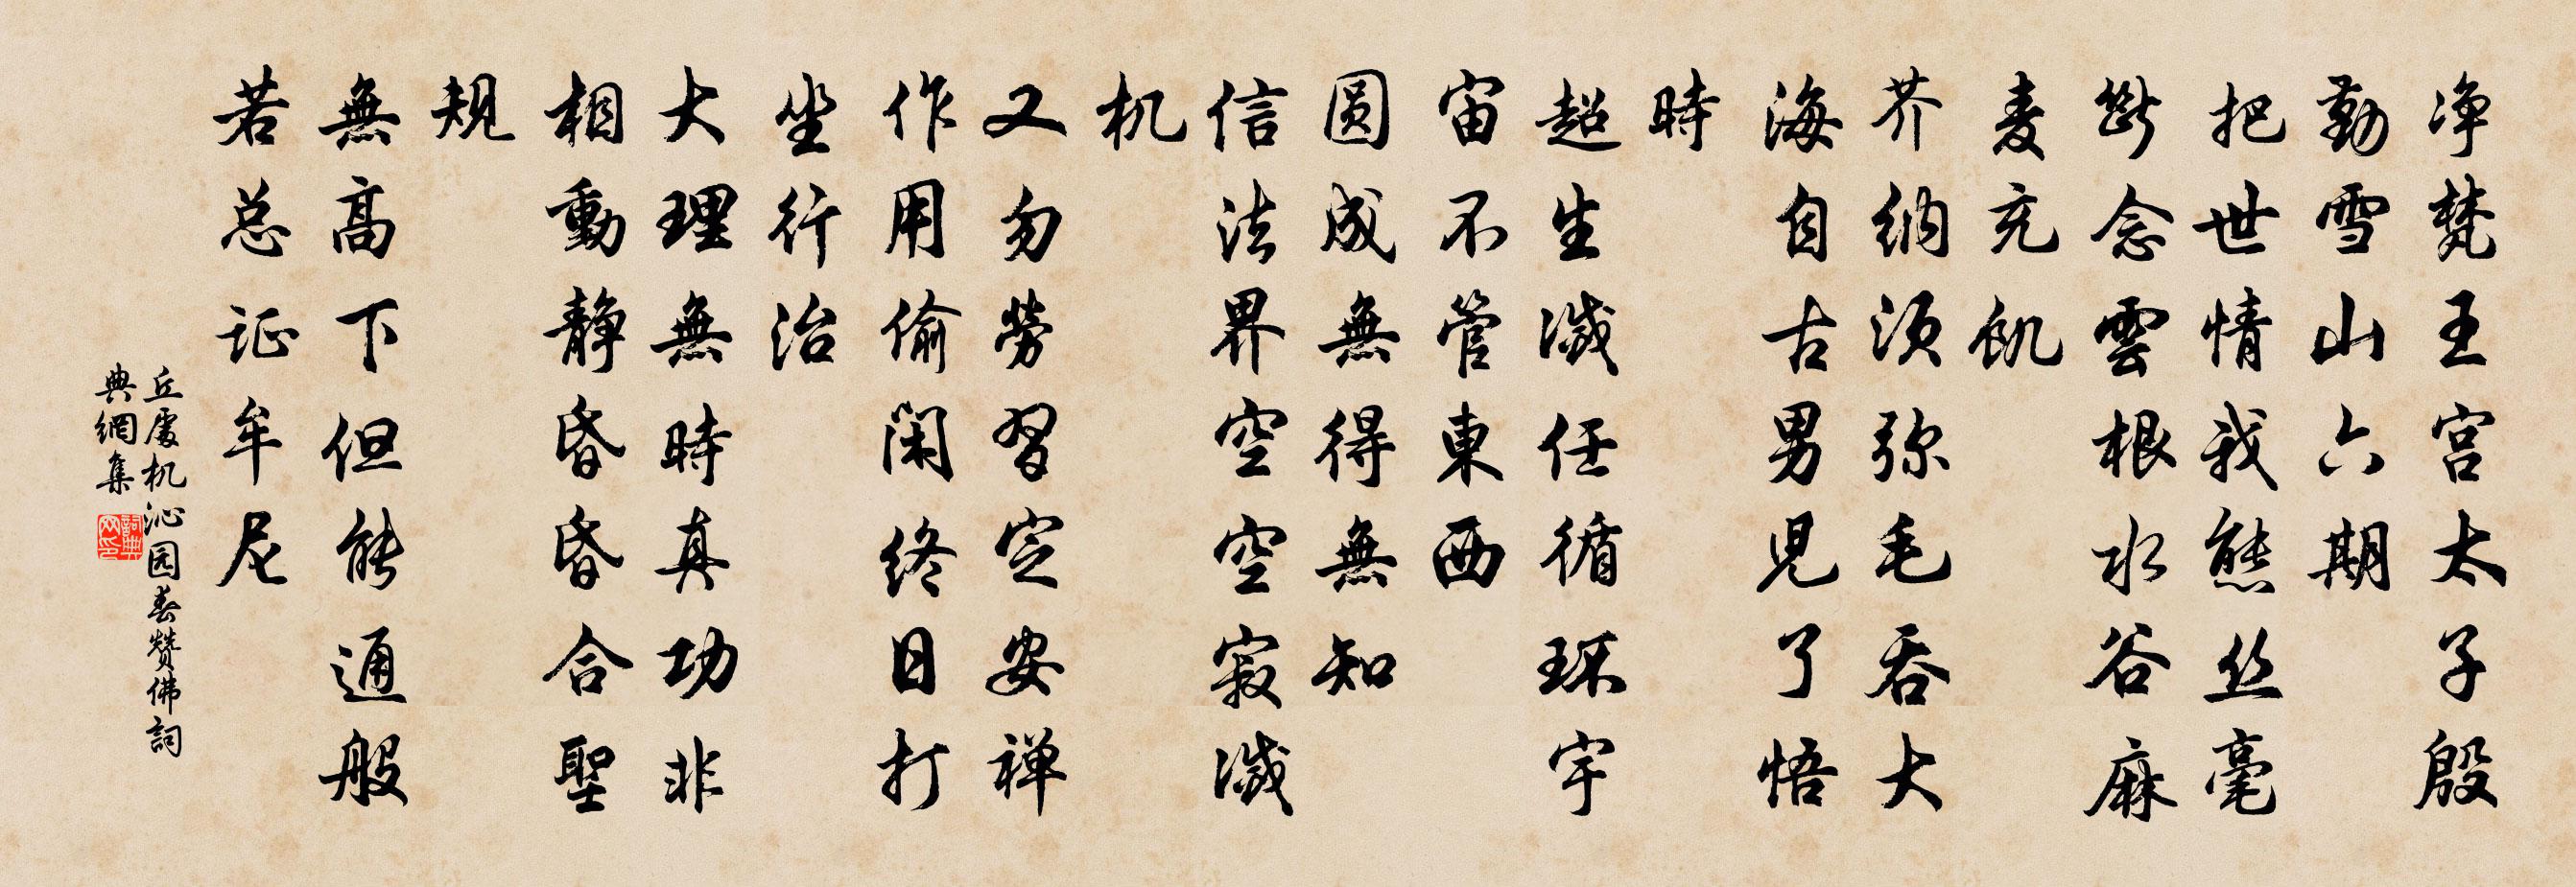 净梵王宫太子殷
勤雪山六期
把世情我態丝毫
斷念雲根水谷麻
麦充飢
芥纳须弥毛吞大
海自古男児了悟
時
超生滅任循环宇
宙不管東西
圆成無得無知
信法界空空寂滅
机
又勿勞習定安禅
作用偷闲終日打
坐行治
大理無時真功非
相動静昏昏合聖
規
無高下但能通般
若总证牟尼
丘處机沁园春赞佛詞
典網集
詞典网印